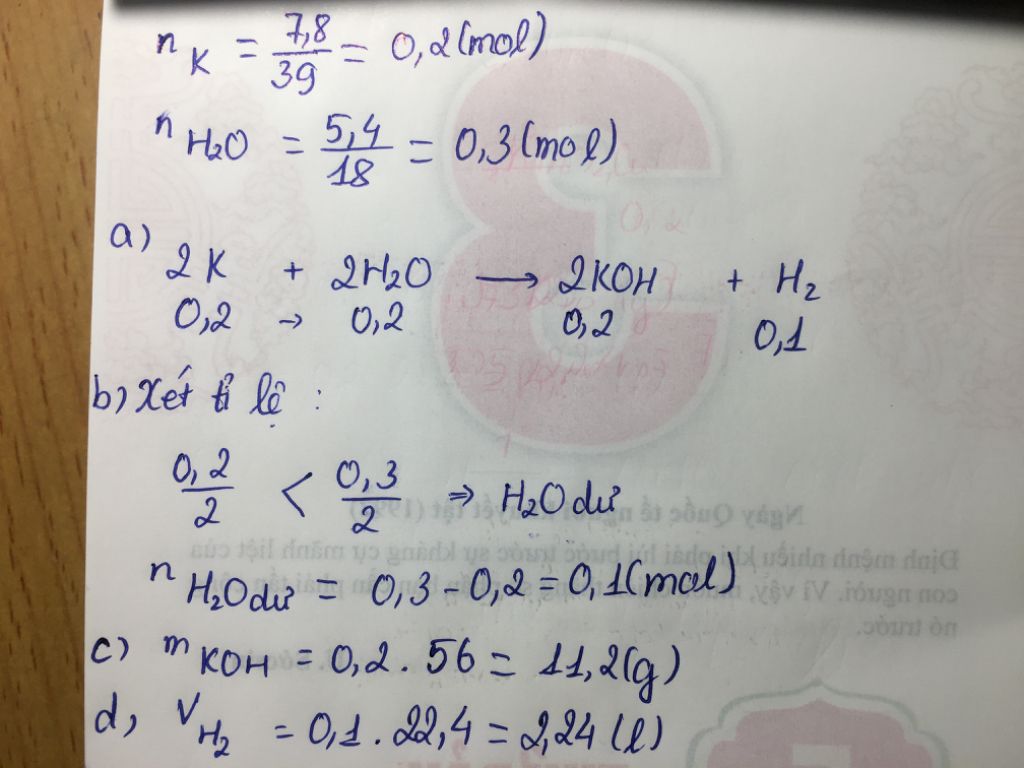 n K = 7,8/39 = 0,2 (mol)
n H₂O = 5,4/18 = 0,3 (mol)
a)
2K + 2H₂O → 2KOH + H₂
0,2 → 0,2 0,2 0,1
b) Xét tỉ lệ :
0,2/2 < 0,3/2 ⇒ H₂O dư
n H₂O dư = 0,3 - 0,2 = 0,1 (mol)
c) m KOH = 0,2 . 56 = 11,2 (g)
d, V H₂ = 0,1 . 22,4 = 2,24 (l)
Ngày Quốc tế người khuyết tật
Định mệnh nhiều khi phải lùi bước trước sự kháng cự mãnh liệt của
con người. Vì vậy, phải
nó trước.